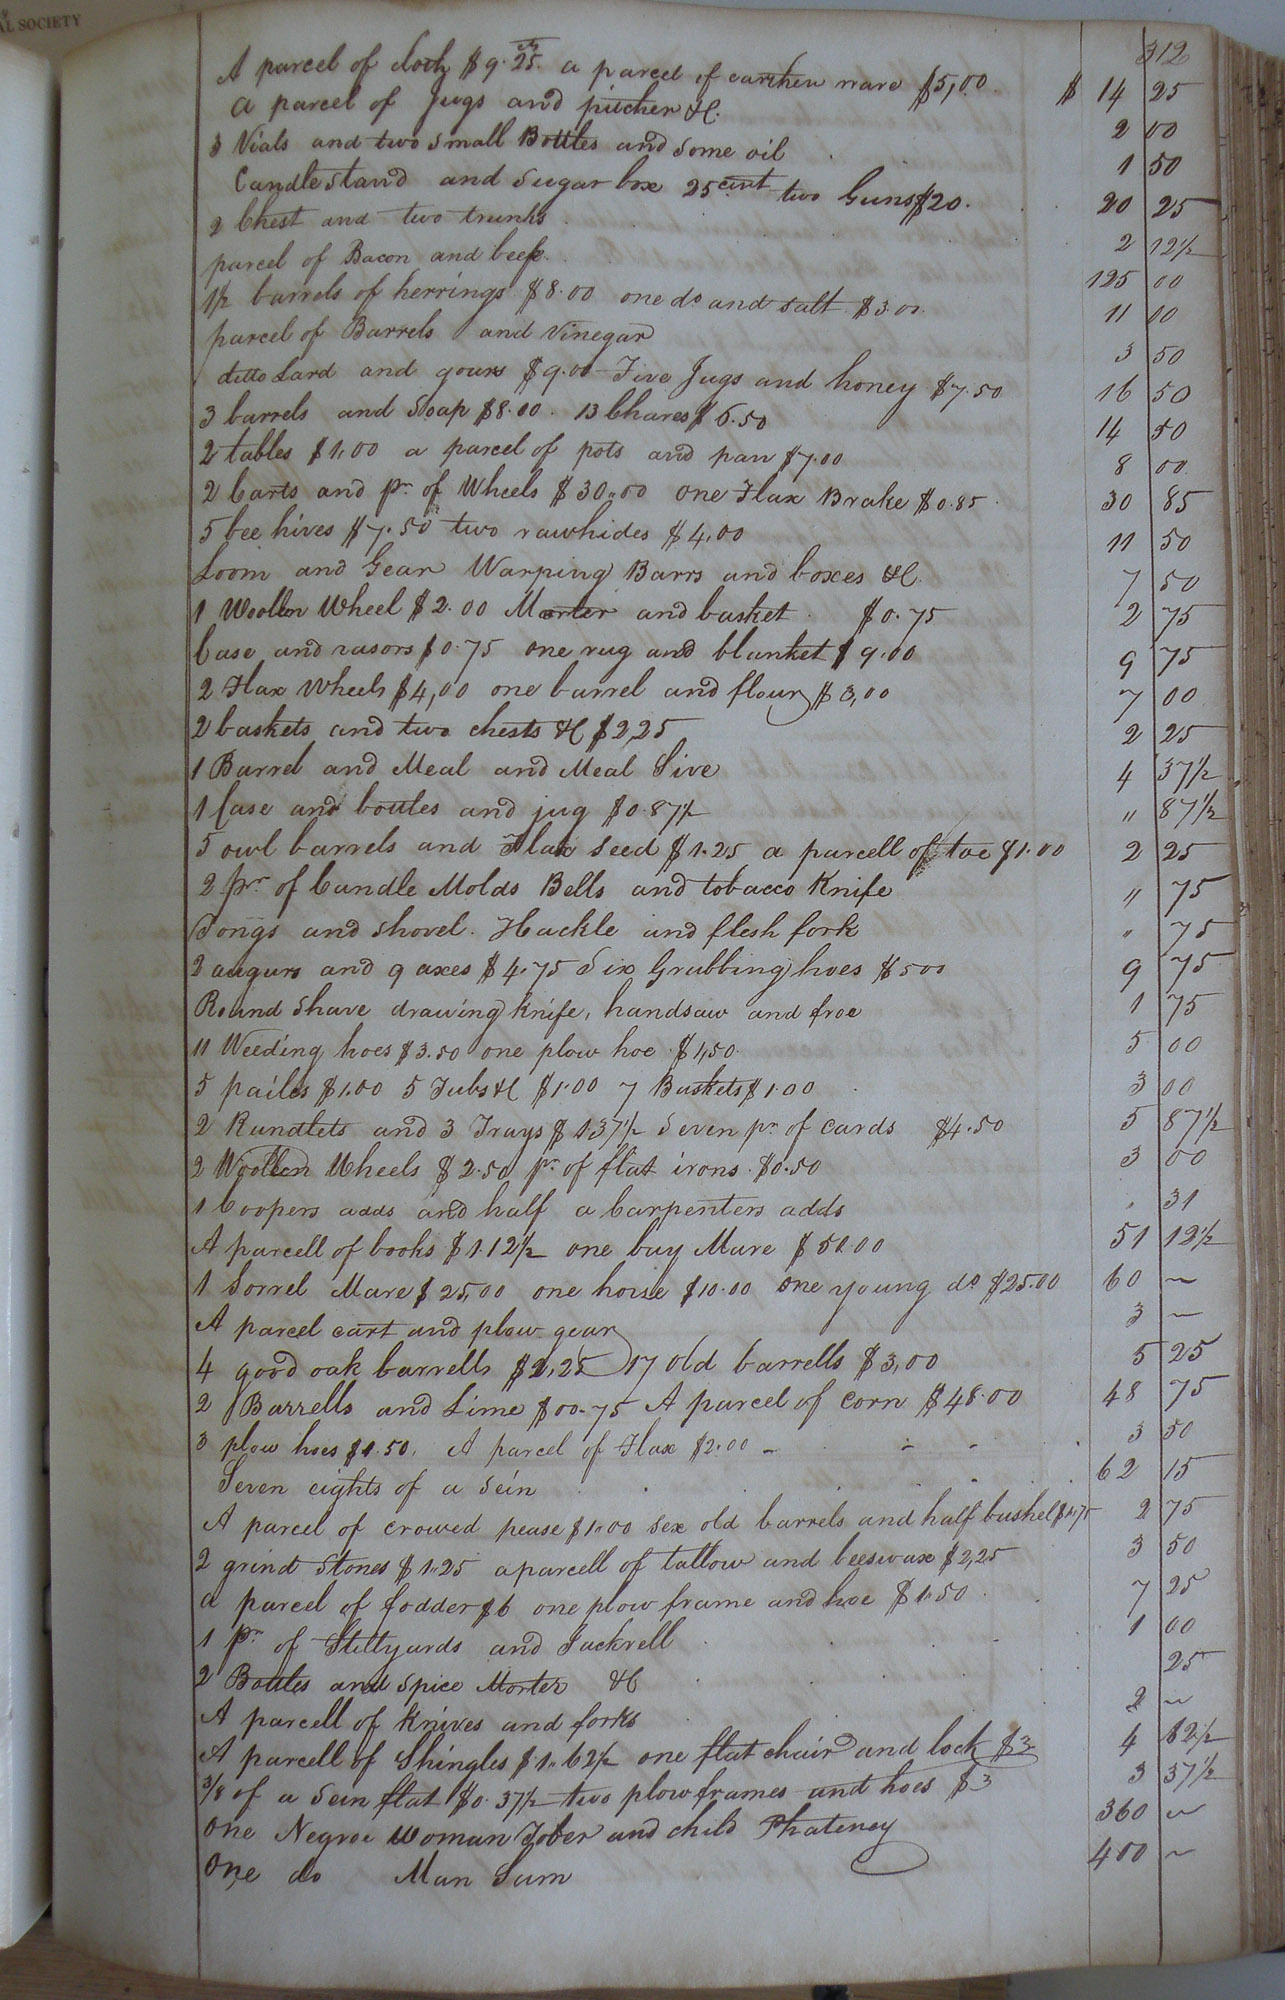 AL SOCIETY
312
A parcel of cloth $9.25 a parcel of earthen ware $5,00. $ 14 25
a parcel of Jugs and pitcher &C. 2 00
3 Vials and two small Bottles and some oil 1 50
Candle stand and sugar box 25 cent two Guns $20. 20 25
2 Chest and two trunks 2 12½
parcel of Bacon and beef 125 00
1½ barrels of herrings $8.00 one do and salt $3.00 11 00
parcel of Barrels and Vinegar 3 50
ditto Lard and $9.00 Five Jugs and honey $7.50 16 50
3 barrels and Soap $8.00. 13 Chares $6.50 14 50
2 tables $1,00 a parcel of pots and pan $7.00 8 00
2 Carts and pr. of Wheels $30.00 one Flax Brake $0.85 30 85
5 bee hives $7.50 two rawhides $4,00 11 50
Loom and Gear Warping Barrs and boxes &C. 7 50
1 Woollen Wheel $2.00 Morter and basket $0.75 2 75
Case and rasors $0.75 one rug and blanket $9.00 9 75
2 Flax Wheels $4,00 one barrel and flour $3,00 7 00
2 baskets and two chests &C $2,25 2 25
1 Barrel and Meal and Meal Sive 4 37½
1 Case and bottles and jug $0.87½ " 87½
5 owl barrels and Flax seed $1.25 a parcell of toe $1.00 2 25
2 pr. of Candle Molds Bells and tobacco Knife " 75
Tongs and shovel. Hackle and flesh fork " 75
2 augurs and 9 axes $4.75 Six Grubbing hoes $500 9 75
Round Shave drawing Knife, handsaw and froe 1 75
11 Weeding hoes $3.50 one plow hoe $1,50. 5 00
5 pailes $1.00 5 Tubs &C $1.00 7 Baskets $1.00 3 00
2 Rundlets and 3 Trays $1.37½ Seven pr. of cards $4.50 5 87½
2 Woollen Wheels $2.50 pr. of flat irons. $0.50 3 00
1 Coopers adds and half a Carpenters adds " 31
A parcell of books $1.12½ one bay Mare $50.00 51 12½
1 Sorrel Mare $25,00 one horse $10.00 one young do $25.00 60 ~
A parcel cart and plow gear 3 ~
4 good oak barrells $2,25 17 old barrells $3,00 5 25
2 Barrells and Lime $00.75 A parcel of corn $48.00 48 75
3 plow hoes $1.50. A parcel of Flax $2.00 3 50
Seven eights of a sein 62 15
A parcel of crowed pease $1.00 sex old barrels and half bushel $1.75 2 75
2 grind Stones $1.25 a parcell of tallow and beeswax $2,25 3 50
a parcel of fodder $6 one plow frame and hoe $1.50 7 25
1 pr. of Stillyards and 1 00
2 Bottles and spice Morter &C 25
A parcell of Knives and forks 2 ~
A parcell of Shingles $1.62½ one flat chair and lock $3 4 62½
3/8 of a sein flat $0.37½ two plow frames and hoes $3 3 37½
One Negroe Woman Tober and child Phateney 360 ~
One do Man Sam 400 ~